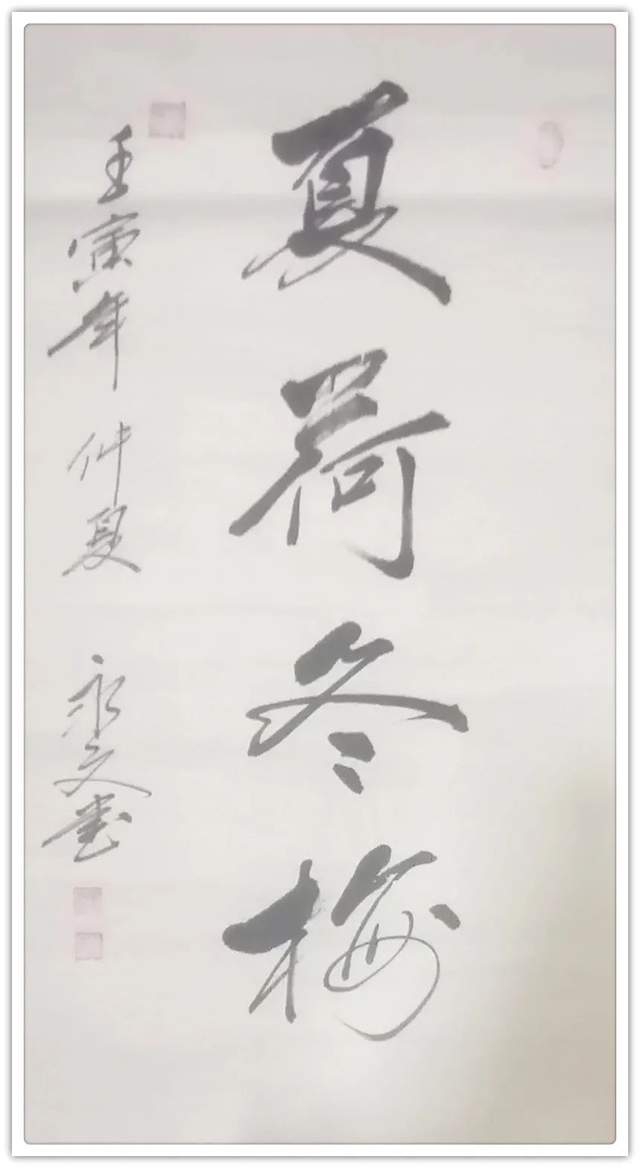 夏荷冬梅
壬寅年仲夏 永文书